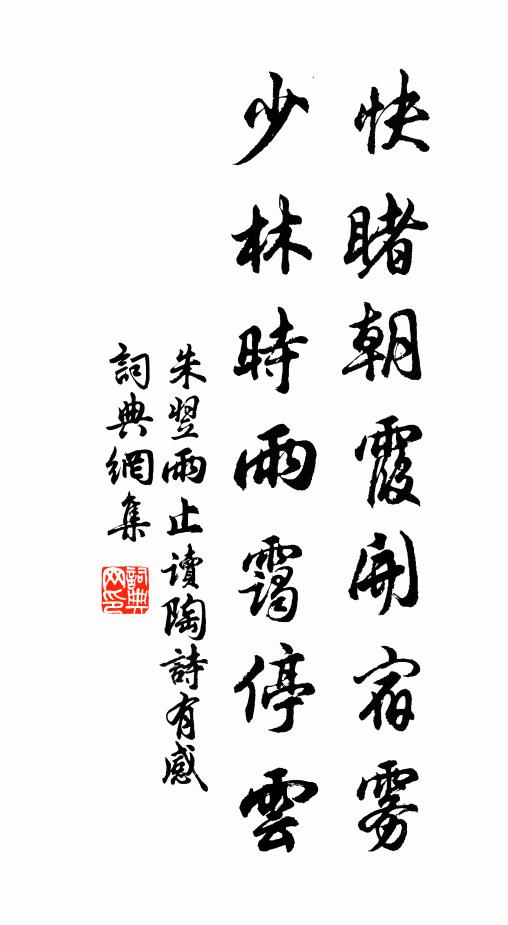 快睹朝霞開宿霧
少林時雨靄停雲
朱翌雨止讀陶詩有感
詞典網集
詞典网印